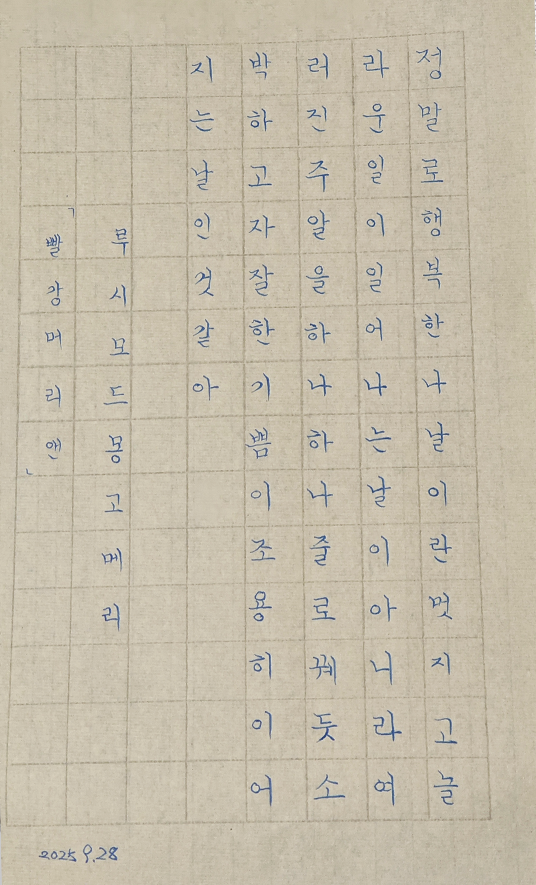 정말로행복한나날이란멋지고놀
라운일이일어나는날이아니라여
러진주알을하나하나줄로꿰듯소
박하고자잘한기쁨이조용히이어
지는날인것같아
루시모드몽고메리
「빨강머리앤」
2025 9.28